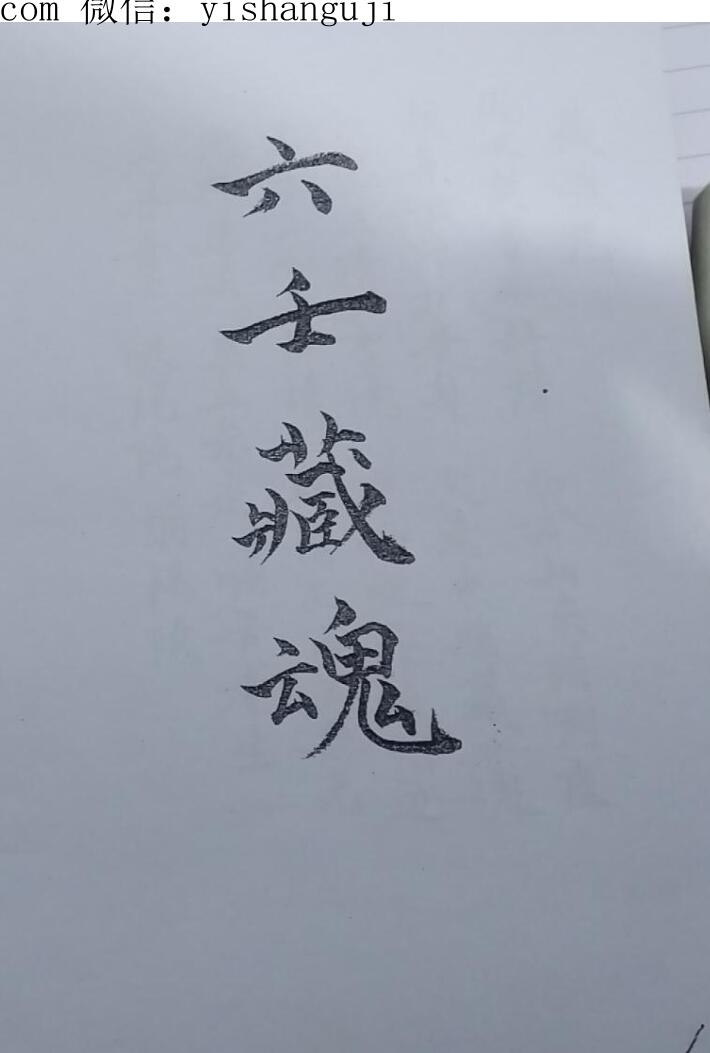 com 微信：yishanguji
六壬藏魂